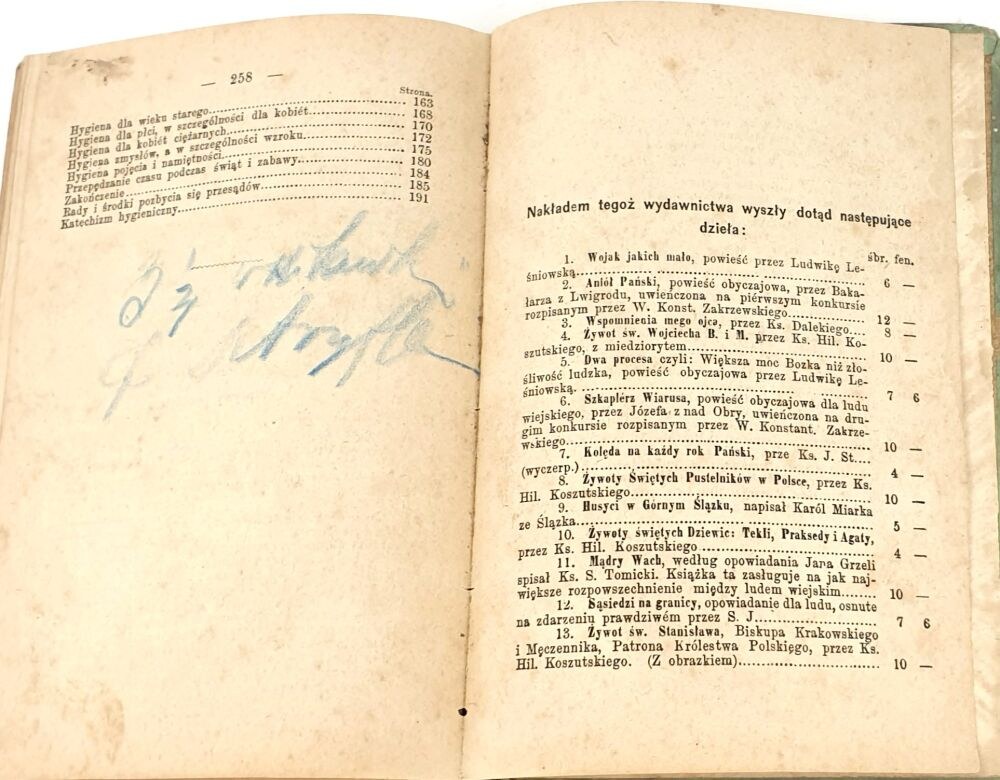 — 258 —
Strona.
Hygiena dla wieku starego 163
Hygiena dla płci, w szczególności dla kobiét 168
Hygiena dla kobiét ciężarnych 170
Hygiena zmysłów, a w szczególności wzroku 172
Hygiena pojęcia i namiętności 175
Przepędzanie czasu podczas świąt i zabawy 180
Zakończenie 184
Rady i środki pozbycia się przesądów 185
Katechizm hygieniczny 191
Nakładem tegoż wydawnictwa wyszły dotąd następujące
dzieła:
śbr. fen.
1. Wojak jakich mało, powieść przez Ludwikę Le-
śniowską 6 —
2. Aniół Pański, powieść obyczajowa, przez Baka-
łarza z Lwigrodu, uwieńczona na piérwszym konkursie
rozpisanym przez W. Konst. Zakrzewskiego 12 —
3. Wspomnienia mego ojca, przez Ks. Dalekiego 8 —
4. Żywot św. Wojciecha B. i M. przez Ks. Hil. Ko-
szutskiego, z miedziorytem 10 —
5. Dwa procesa czyli: Większa moc Bozka niż zło-
śliwość ludzka, powieść obyczajowa przez Ludwikę Le-
śniowską. 7 6
6. Szkaplérz Wiarusa, powieść obyczajowa dla ludu
wiejskiego, przez Józefa z nad Obry, uwieńczona na dru-
gim konkursie rozpisanym przez W. Konstant. Zakrze-
wskiego 10 —
7. Kolęda na każdy rok Pański, prze Ks. J. St....
(wyczerp.) 4 —
8. Żywoty Świętych Pustelników w Polsce, przez Ks.
Hil. Koszutskiego 10 —
9. Husyci w Górnym Ślązku, napisał Karól Miarka
ze Ślązka 5 —
10. Żywoty świętych Dziewic: Tekli, Praksedy i Agaty,
przez Ks. Hil. Koszutskiego 4 —
11. Mądry Wach, według opowiadania Jana Grzeli
spisał Ks. S. Tomicki. Książka ta zasługuje na jak naj-
większe rozpowszechnienie między ludem wiejskim 10 —
12. Sąsiedzi na granicy, opowiadanie dla ludu, osnute
na zdarzeniu prawdziwém przez S. J. 7 6
13. Żywot św. Stanisława, Biskupa Krakowskiego
i Męczennika, Patrona Królestwa Polskiego, przez Ks.
Hil. Koszutskiego. (Z obrazkiem) 10 —